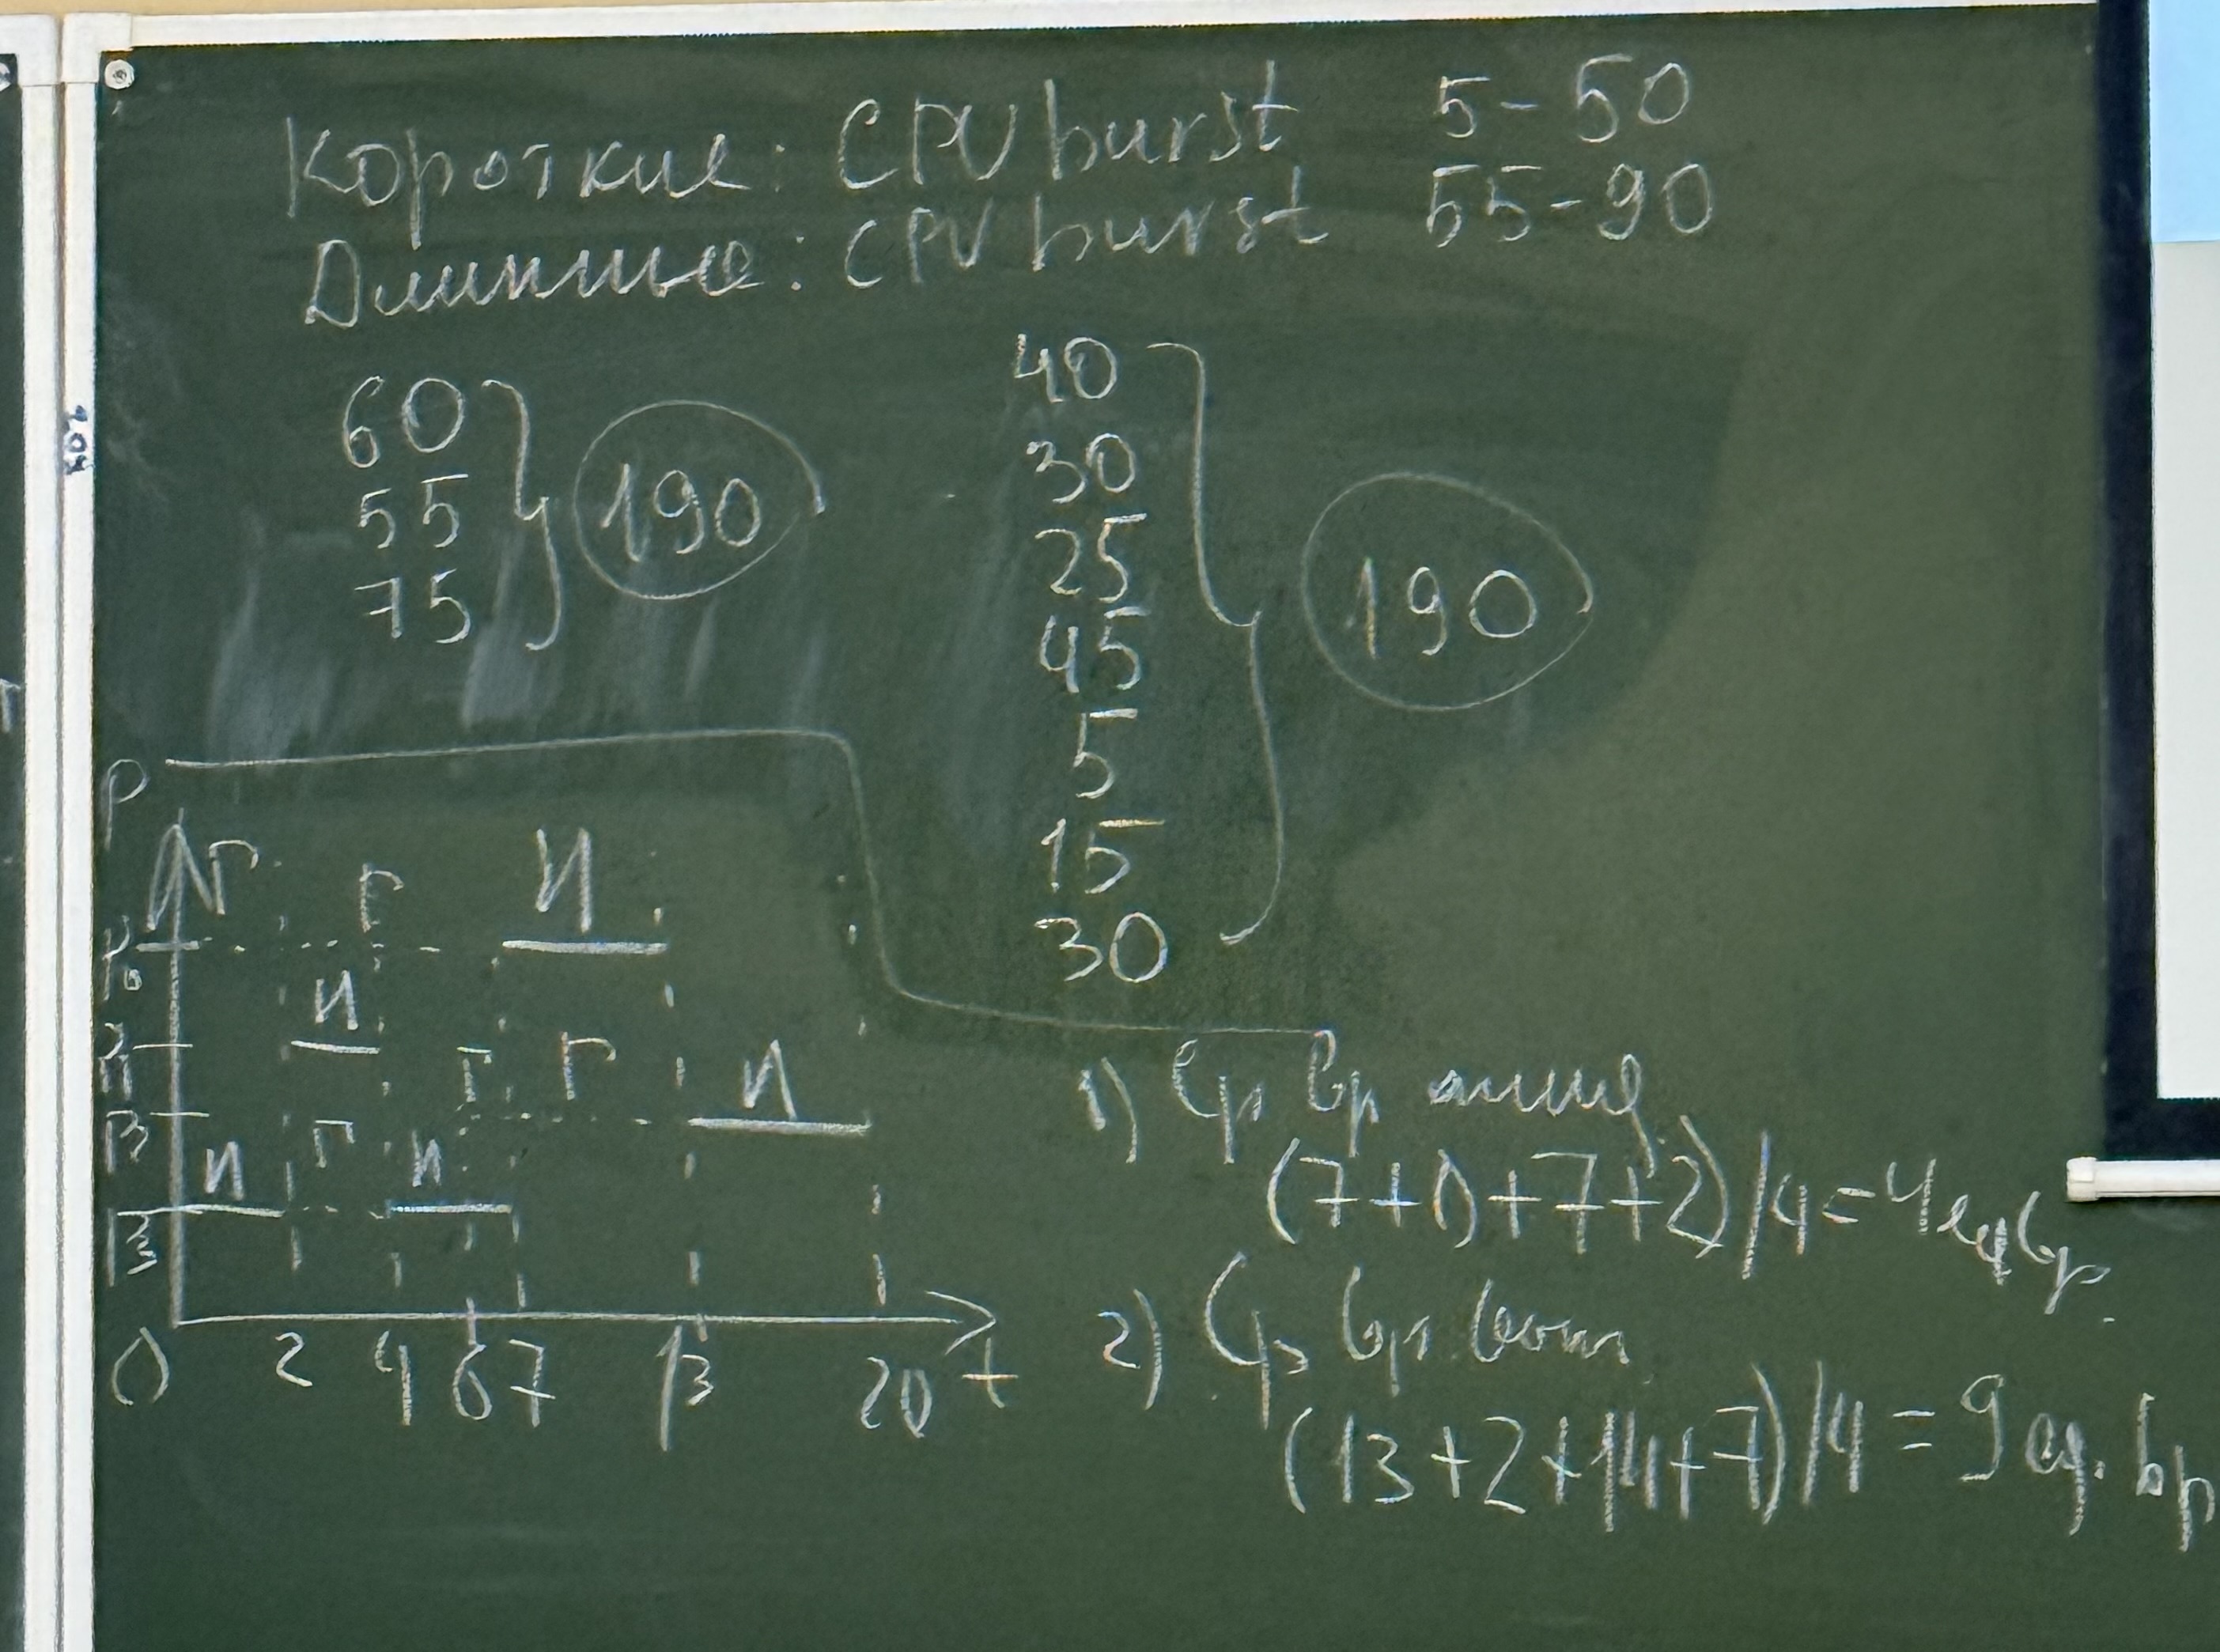 Короткие: CPU burst 5-50
Длинные: CPU burst 55-90
60
55
75
190
40
30
25
45
5
15
30
190
P
Г Г И
P0
И
Г Г И
И Г И
0 2 4 6 7 13 20 t
1) Ср вр ожид
(7+0+7+2)/4=4 ед вр.
2) Ср вр вып
(13+2+14+7)/4=9 ед. вр
204